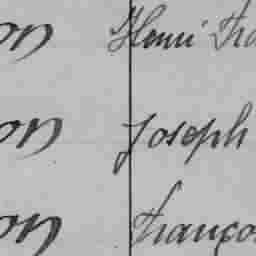 on Henri Fra
on Joseph
on Françoi